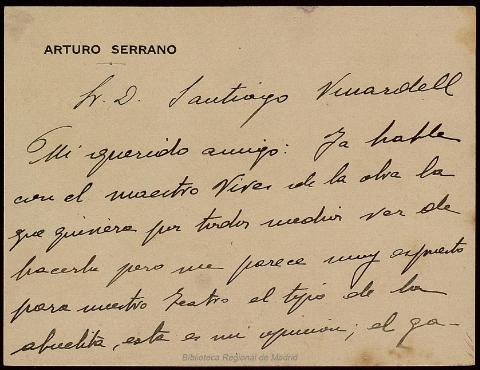 ARTURO SERRANO
Sr. D. Santiago Vinardell
Mi querido amigo: Ya hable
con el maestro Vives de la obra la
que quisiera por todos medios ver de
hacerla pero me parece muy expuesto
para nuestro Teatro el tipo de la
abuelita, esta es mi opinion; el ga-
Biblioteca Regional de Madrid